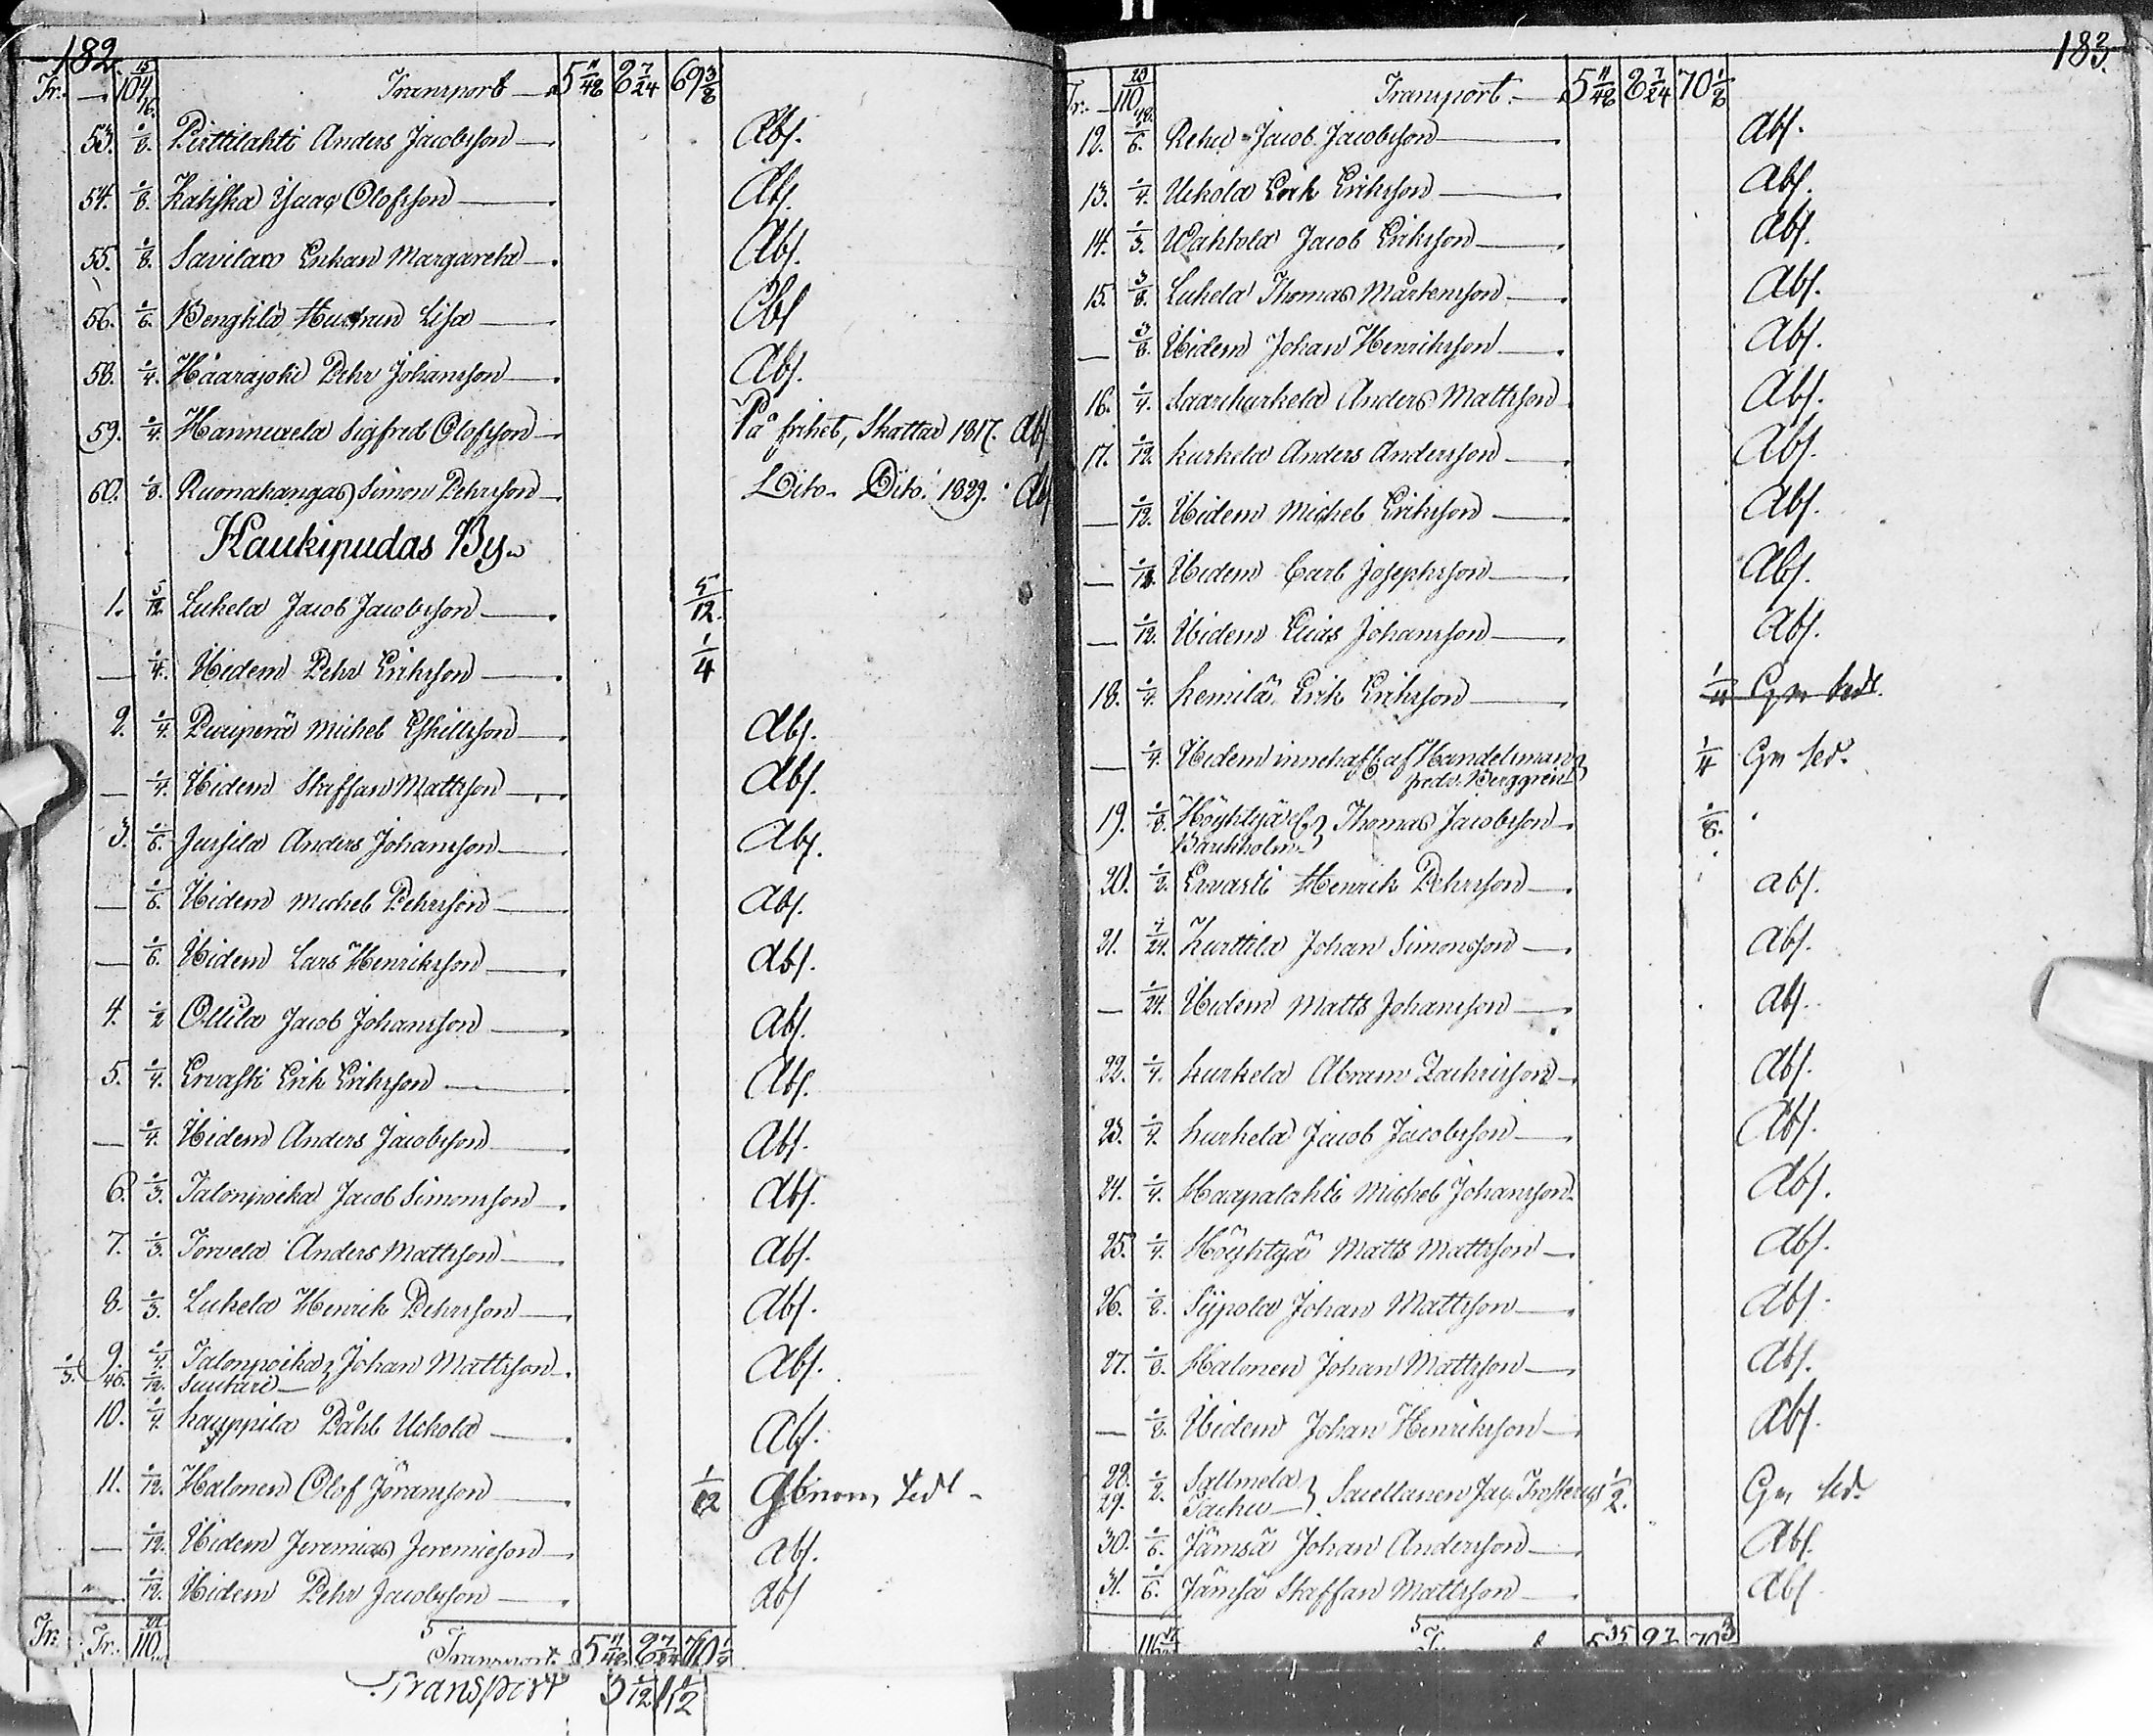 182.
Tr. — 104 15/16. Transport — 5 11/48 2 7/24 69 3/8
53. 1/8. Pirttilahti Anders Jacobsson — Abs.
54. 1/8. Isaac Olofsson — Abs.
55. 1/8. Savilaxo Enkan Margaretha — Abs.
56. 1/6. Bengtila Hustrun Lisa — Abs
58. 1/4. Haarajoki Pehr Johansson — Abs.
59. 1/4. Hannuxela Sigfred Olofsson — På frihet, Skattar 1817. Abs
60. 1/8. Ruonakangas Simon Pehrsson — Dito Dito 1829. Abs
Haukipudas By
1. 5/12 Lukela Jacob Jacobsson — 5/12.
— 1/4. Ibidem Pehr Eriksson — 1/4
2. 1/4. Puuperä Michel Eskillsson — Abs.
— 1/4. Ibidem Staffan Mattsson — Abs.
3. 1/6. Jussila Anders Johansson — Abs.
— 1/6. Ibidem Michel Pehrsson — Abs.
— 1/6. Ibidem Lars Henriksson — Abs.
4. 1/2 Ollila Jacob Johansson — Abs.
5. 1/4. Ervasti Erik Eriksson — Abs.
— 1/4. Ibidem Anders Jacobsson — Abs.
6. 1/3. Talonpoika Jacob Simonsson — Abs.
7. 1/3. Torvela Anders Mattsson — Abs.
8. 1/3. Lukela Henrik Pehrsson — Abs.
1/3. 9. 1/4. Talonpoika Johan Mattsson — Abs.
46. 1/12. Suutari —
10. 1/4. Kauppila Påhl Uckola — Abs.
11. 1/12. Halonen Olof Jöransson — 1/12 Genom Sedl
— 1/12. Ibidem Jeremias Jeremieson — Abs.
— 1/12. Ibidem Pehr Jacobsson — Abs
Tr. Tr. 110 Transport 5 11/48 2 7/24 70 1/8
Transport
183.
Tr. — 110 Transport. — 5 11/48 2 7/24 70 1/8
12. 1/6. Rehu Jacob Jacobsson — Abs.
13. 1/4. Uckola Erik Eriksson — Abs.
14. 1/3. Wahtola Jacob Eriksson — Abs.
15. 3/8. Lukela Thomas Mårtensson — Abs.
— 3/8. Ibidem Johan Henriksson — Abs.
16. 1/4. Saarikurkela Anders Mattsson Abs.
17. 1/12. Kurkela Anders Andersson — Abs.
— 1/12. Ibidem Michel Eriksson — Abs.
— 1/12. Ibidem Carl Josephsson — Abs.
— 1/12. Ibidem Elias Johansson — Abs.
18. 1/4. Kemilä Erik Eriksson — 1/4 Gm Sedl.
— 1/4. Ibidem innehaft af Handelsman 1/4 Gm Sed.
Fredr. Berggren
19. 1/8. Höyhtyä Thomas Jacobsson — 1/8.
Backholm
20. 1/2. Ervasti Henrik Pehrsson — Abs.
21. 7/24. Kurttila Johan Simonsson — Abs.
— 1/24. Ibidem Matts Johansson — Abs.
22. 1/4. Kurkela Abram Zachrisson — Abs.
23. 1/4. Kurkela Jacob Jacobsson — Abs.
24. 1/4. Haapalahti Michel Johansson Abs.
25. 1/4. Höyhtyä Matts Mattsson — Abs.
26. 1/8. Sijpola Johan Mattsson — Abs.
27. 1/8. Halonen Johan Mattsson — Abs.
— 1/8. Ibidem Johan Henriksson — Abs.
28. 1/2. Sallmela Sacellanen Jac. Frosterus 1/2. Gm Sed.
29. Pachu —
30. 1/6. Jämsä Johan Andersson — Abs.
31. 1/6. Jämsä Staffan Mattsson — Abs